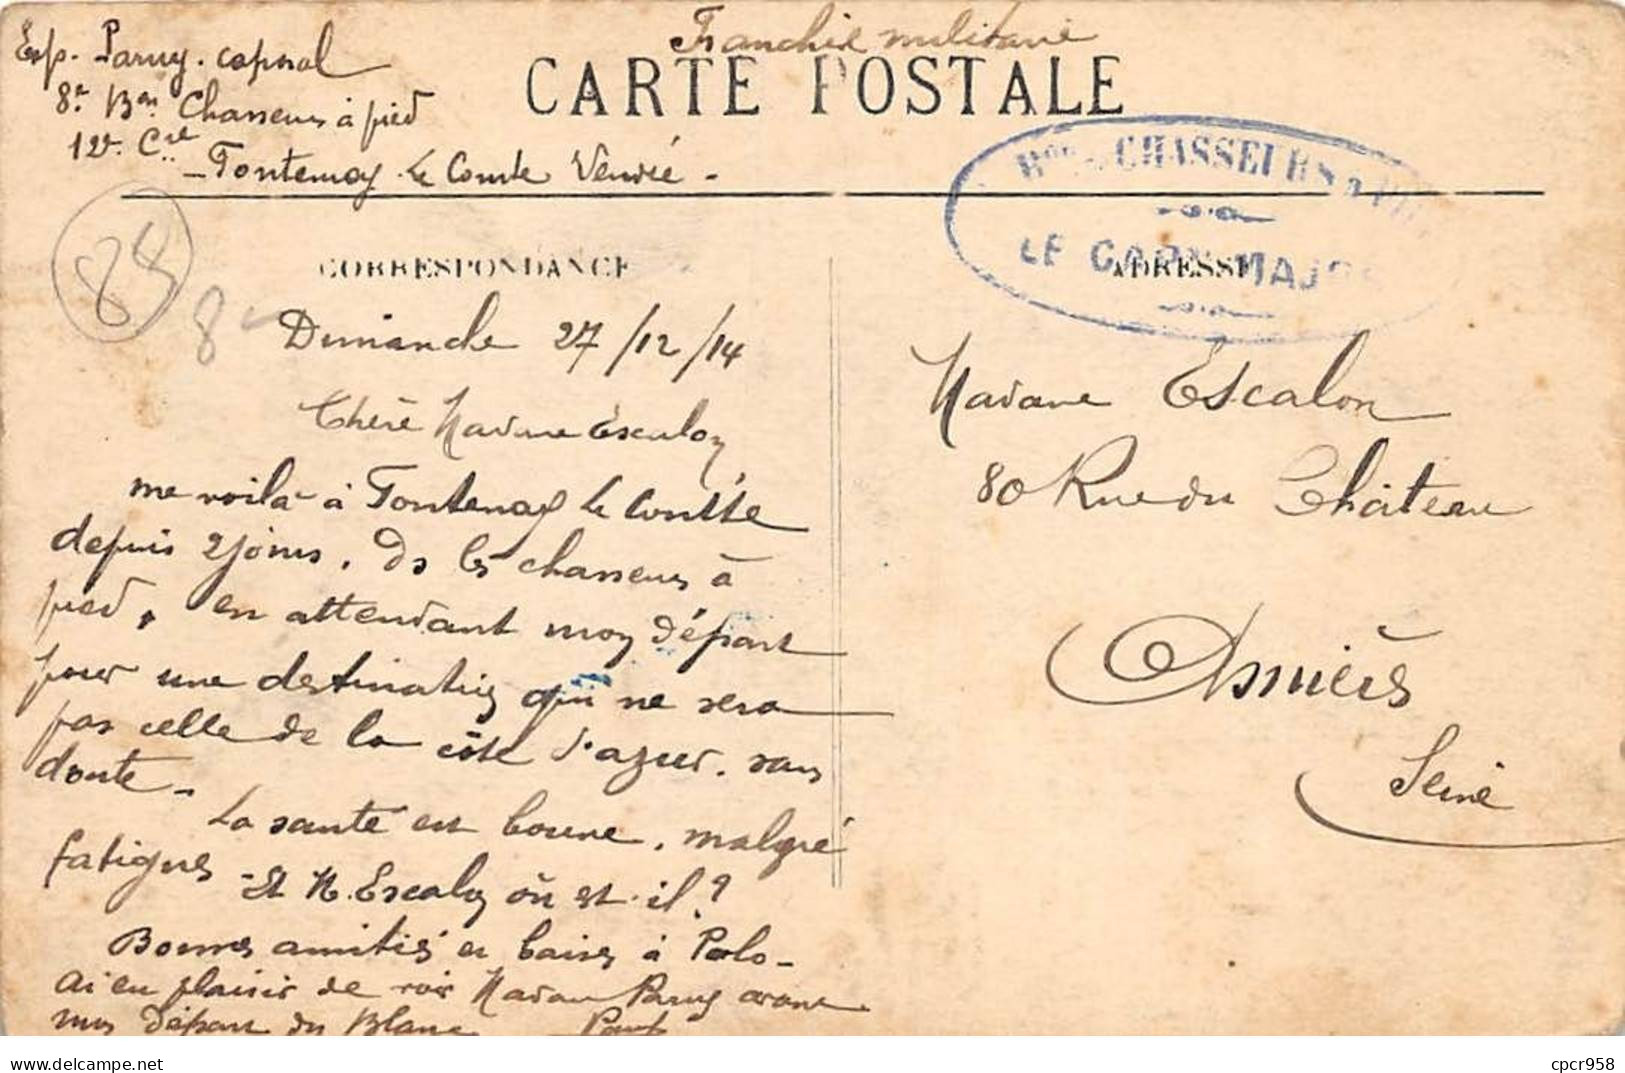 Franchise militaire
Exp. Paruy. caporal
CARTE POSTALE
8e Bon Chasseurs à pied
12e. Cie
- Fontenay le Comte Vendée -
Bon CHASSEURS à PIED
LE CAPN MAJOR
84
8
CORRESPONDANCE
ADRESSE
Dimanche 27/12/14
Chère Madame Escalon
me voilà à Fontenay le Comte
depuis 2 jours. Ds les chasseurs à
pied, en attendant mon départ
pour une destination qui ne sera
pas celle de la côte d'azur. sans
doute -
La santé est bonne, malgré
fatigues - Et M. Escalon où est-il?
Bonnes amitiés et baises à Polo -
Ai eu plaisir de voir Madame Paruy avant
mon départ du Blanc
Madame Escalon
80 Rue du Château
Asnières
Seine
delcampe.net
cpcr958